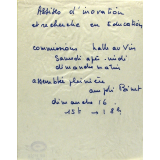 d'inovation
et recherche en Education
commissions halle au Vin
Samedi après-midi
dimanche matin
assemblée plénière
amphi
dimanche 16
15h → 18h